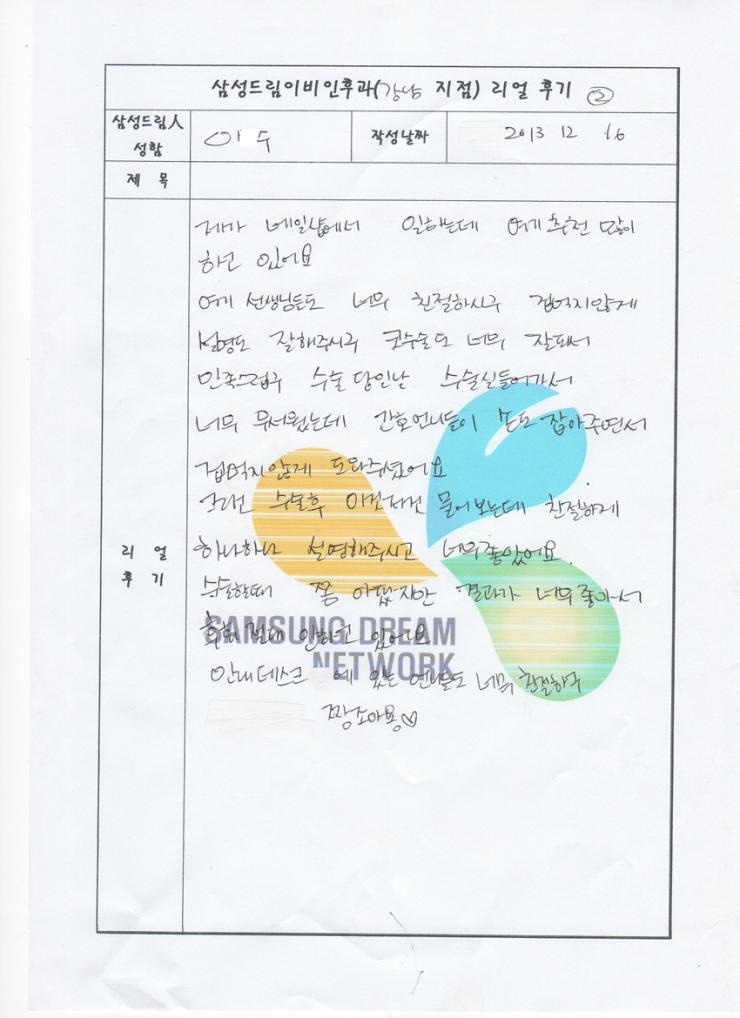 삼성드림이비인후과(강남 지점) 리얼 후기 ②
삼성드림人 성함
이 수
작성날짜
2013 12 16
제 목
리 얼 후 기
제가 네일샵에서 일하는데 여기 추천 많이
하고 있어요
여기 선생님들도 너무 친절하시구 겁먹지않게
설명도 잘해주시구 코수술도 너무 잘되서
만족스럽구 수술 당일날 수술실들어가서
너무 무서웠는데 간호언니들이 손도 잡아주면서
겁먹지않게 도와주셨어요
그리고 수술후 이것저것 물어보는데 친절하게
하나하나 설명해주시고 너무좋았어요.
수술할때 쫌 아팠지만 결과가 너무 좋아서
후회 절대 안하고 있어요
안내데스크 에 있는 언니들도 너무 친절하구
짱조아용♡
SAMSUNG DREAM
NETWORK